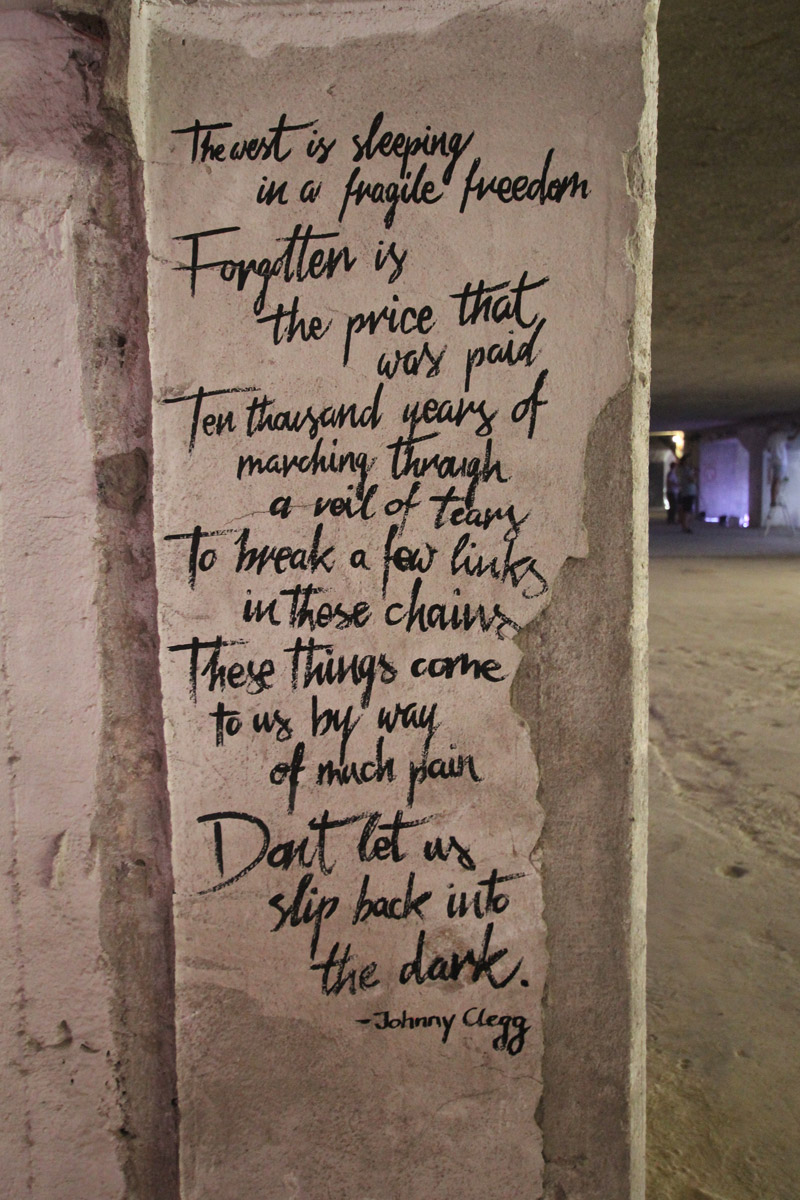 The west is sleeping
in a fragile freedom
Forgotten is
the price that
was paid
Ten thousand years of
marching through
a veil of tears
To break a few links
in these chains
These things come
to us by way
of much pain
Dont let us
slip back into
the dark.
-Johnny Clegg